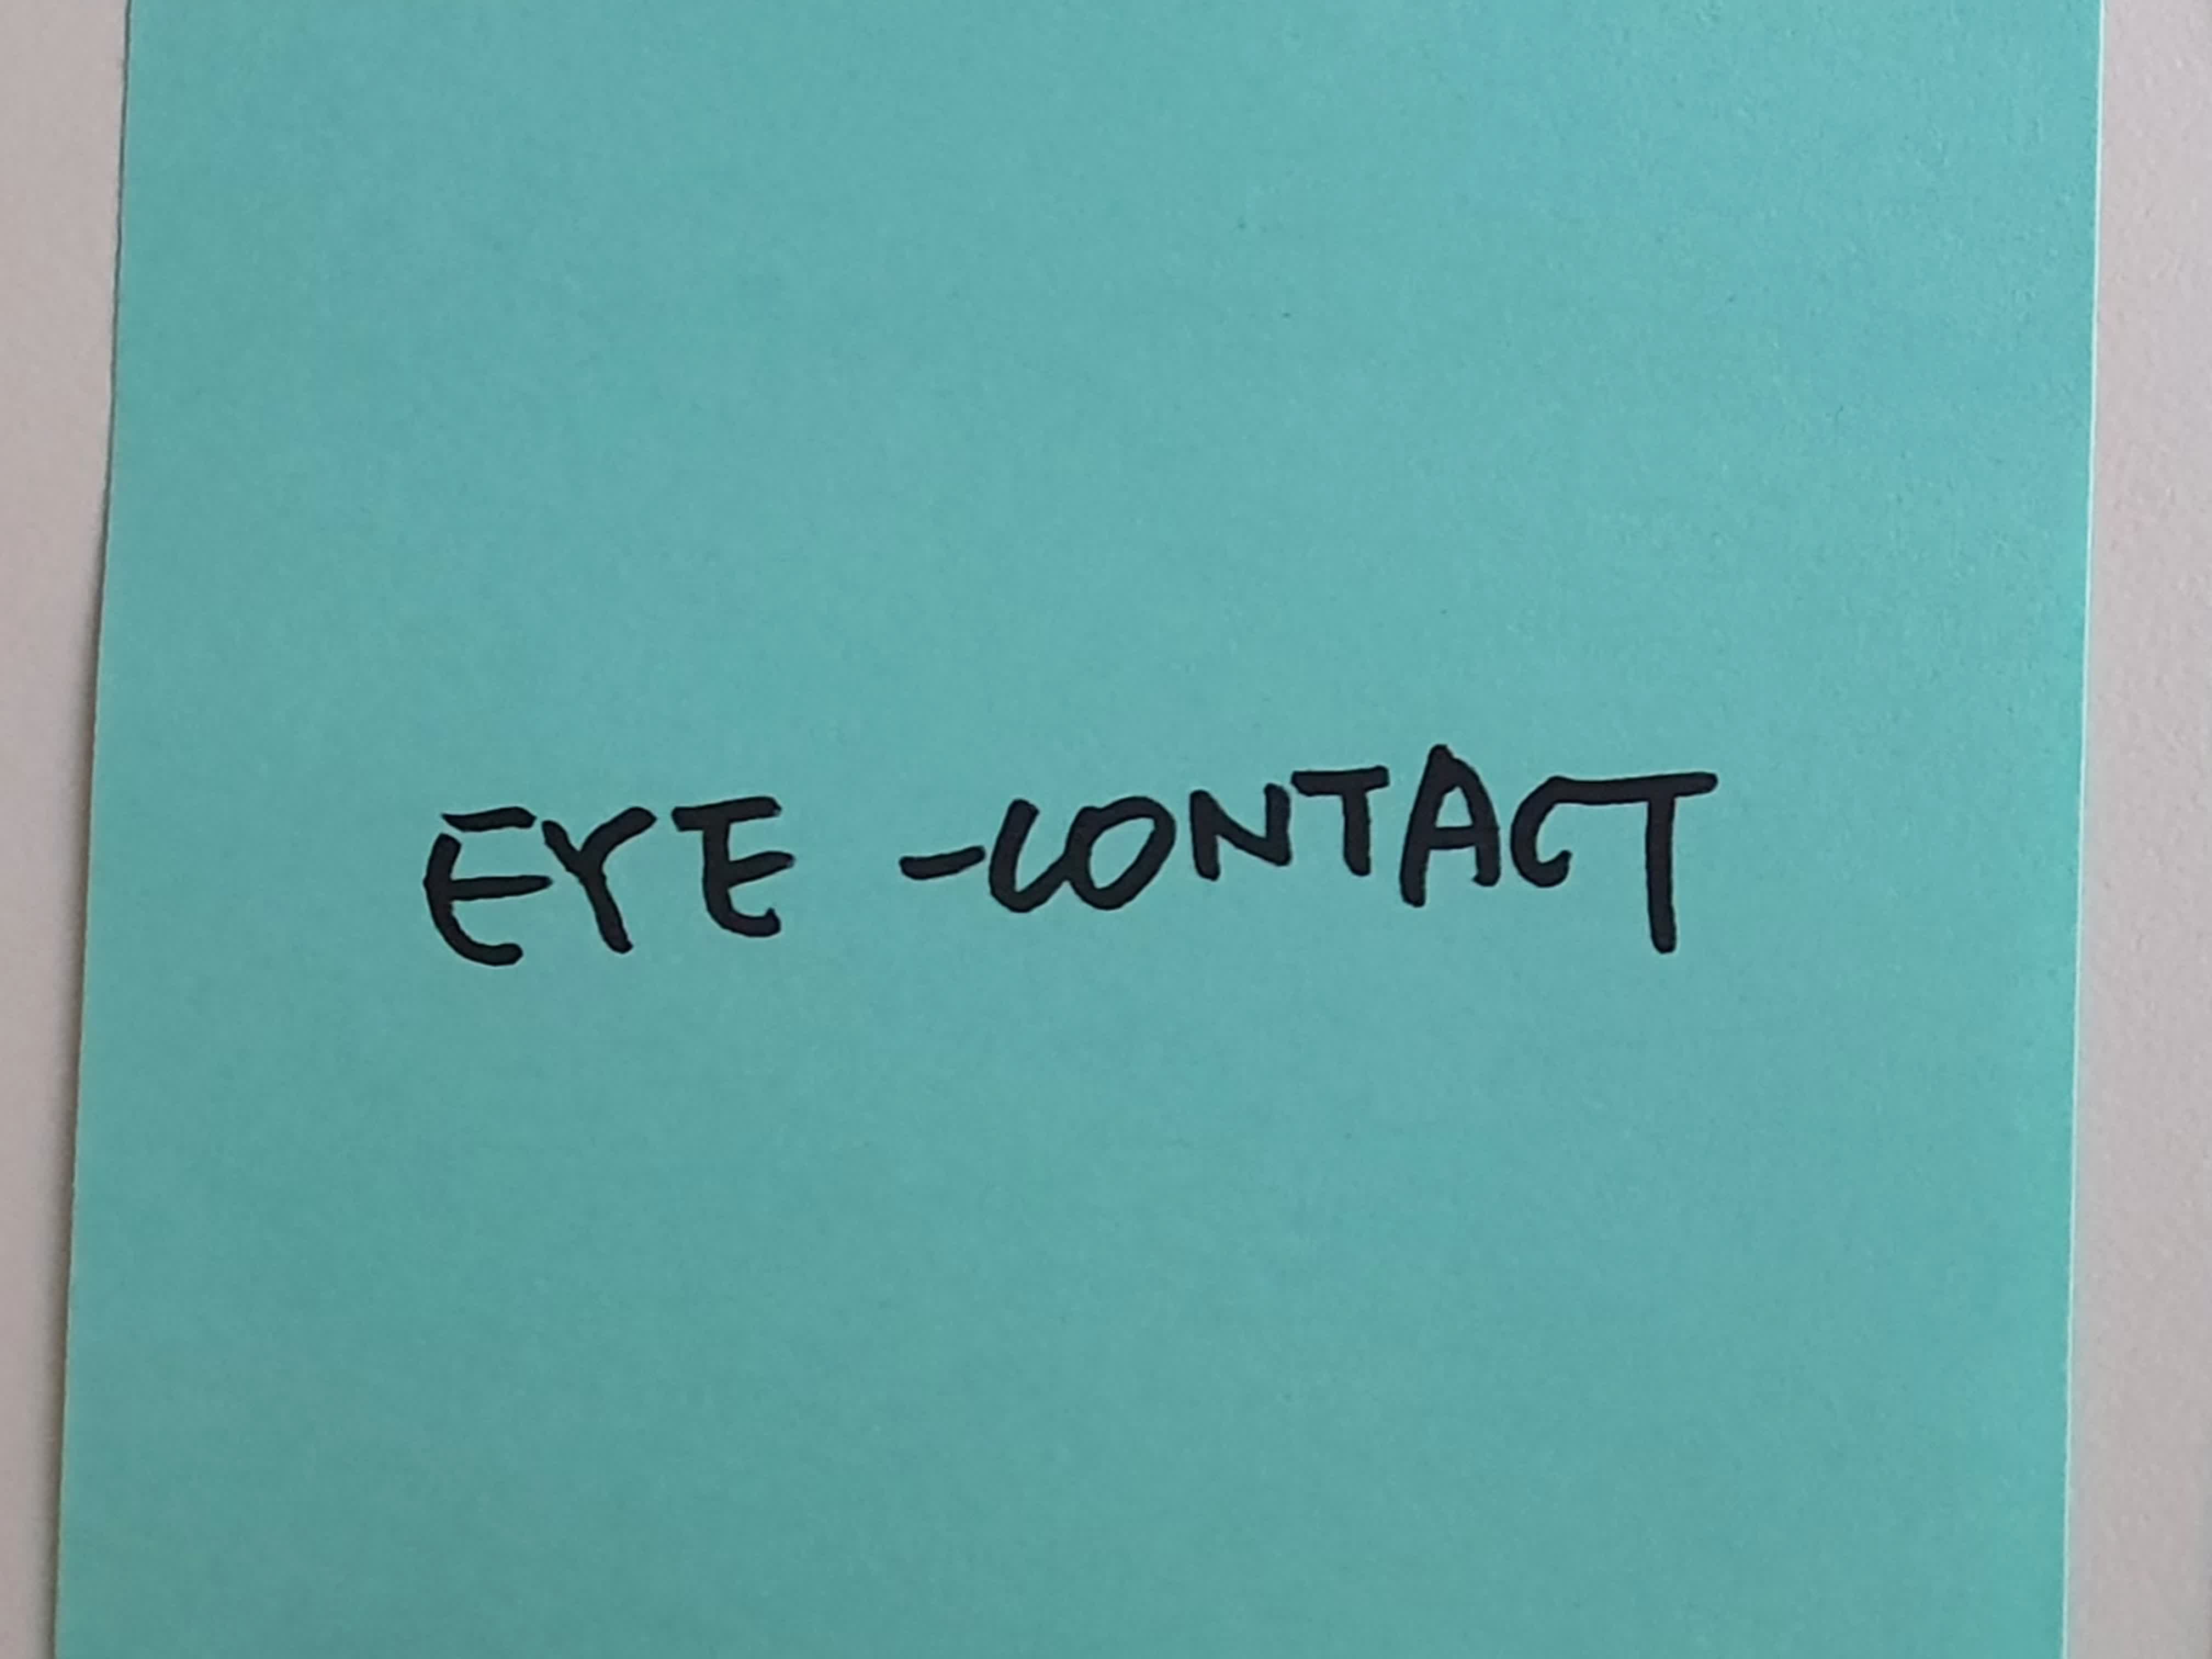 EYE -CONTACT